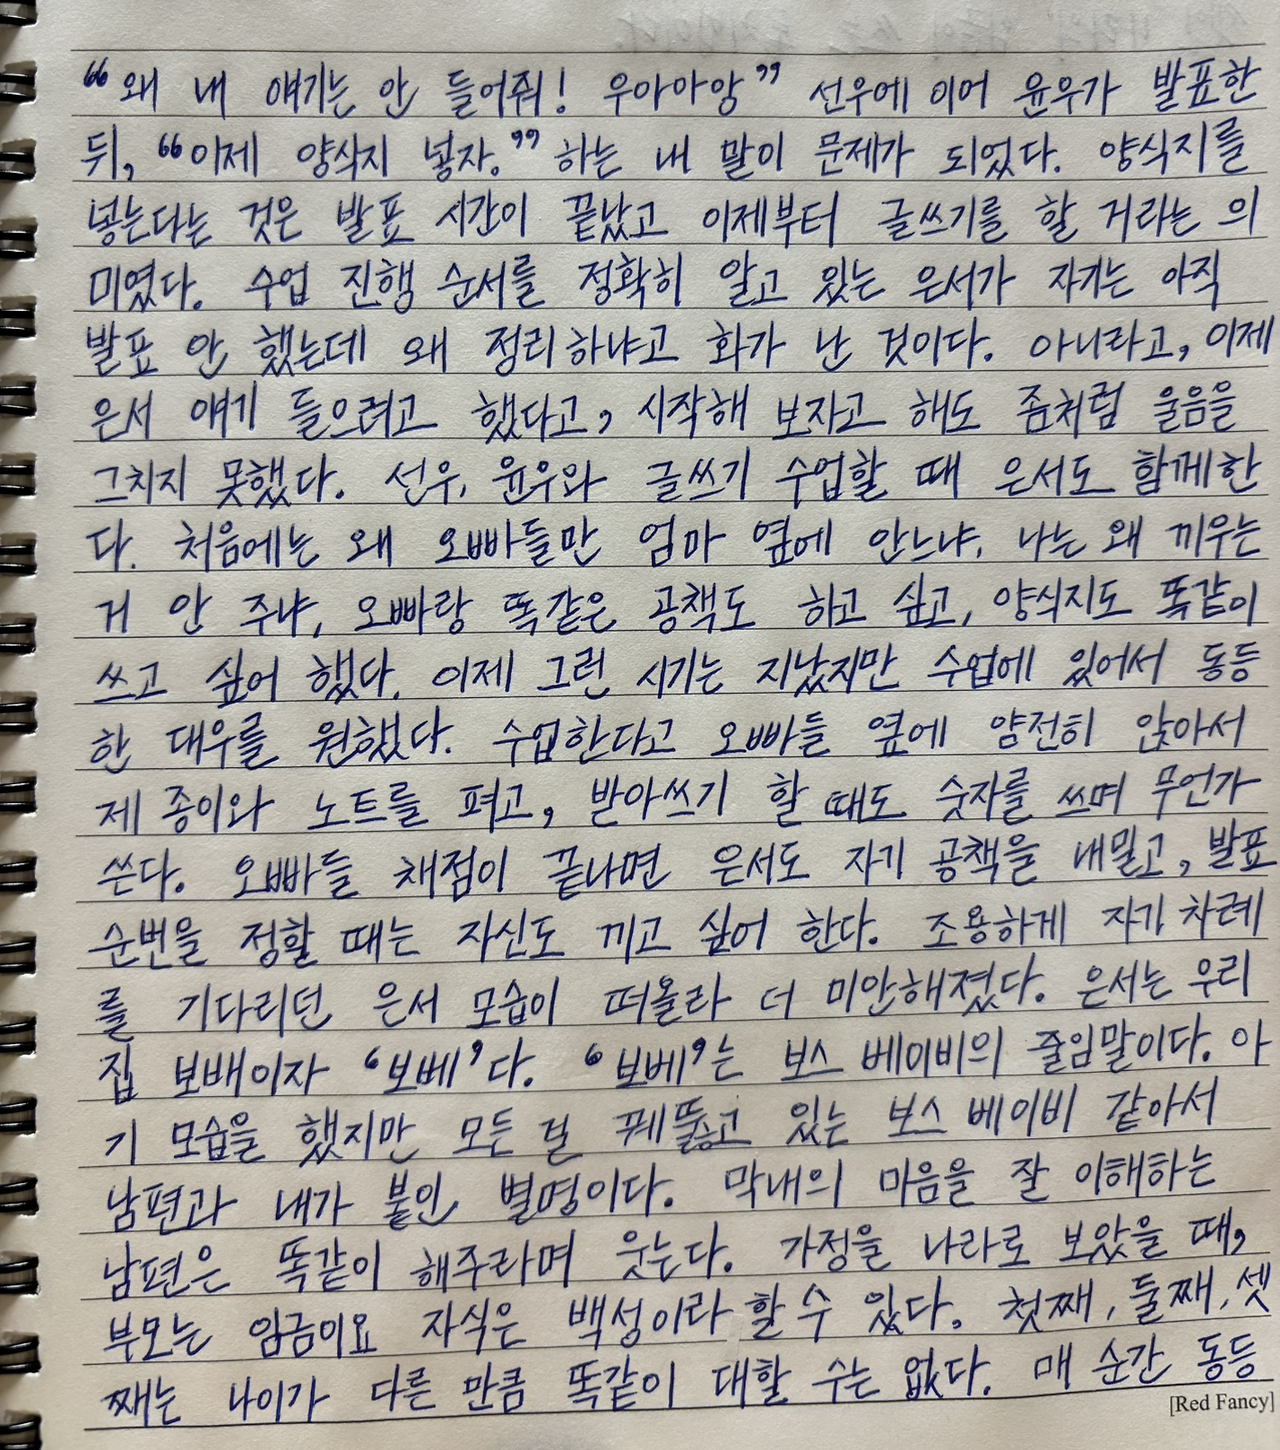 “왜 내 얘기는 안 들어줘! 우아아앙” 선우에 이어 윤우가 발표한
뒤, “이제 양식지 넣자.” 하는 내 말이 문제가 되었다. 양식지를
넣는다는 것은 발표 시간이 끝났고 이제부터 글쓰기를 할 거라는 의
미였다. 수업 진행 순서를 정확히 알고 있는 은서가 자기는 아직
발표 안 했는데 왜 정리하냐고 화가 난 것이다. 아니라고, 이제
은서 얘기 들으려고 했다고, 시작해 보자고 해도 좀처럼 울음을
그치지 못했다. 선우, 윤우와 글쓰기 수업할 때 은서도 함께한
다. 처음에는 왜 오빠들만 엄마 옆에 안느냐, 나는 왜 끼우는
거 안 주냐, 오빠랑 똑같은 공책도 하고 싶고, 양식지도 똑같이
쓰고 싶어 했다. 이제 그런 시기는 지났지만 수업에 있어서 동등
한 대우를 원했다. 수업한다고 오빠들 옆에 얌전히 앉아서
제 종이와 노트를 펴고, 받아쓰기 할 때도 숫자를 쓰며 무언가
쓴다. 오빠들 채점이 끝나면 은서도 자기 공책을 내밀고, 발표
순번을 정할 때는 자신도 끼고 싶어 한다. 조용하게 자기 차례
를 기다리던 은서 모습이 떠올라 더 미안해졌다. 은서는 우리
집 보배이자 ‘보베’다. ‘보베’는 보스 베이비의 줄임말이다. 아
기 모습을 했지만 모든 걸 꿰뚫고 있는 보스 베이비 같아서
남편과 내가 붙인 별명이다. 막내의 마음을 잘 이해하는
남편은 똑같이 해주라며 웃는다. 가정을 나라로 보았을 때,
부모는 임금이요 자식은 백성이라 할 수 있다. 첫째, 둘째, 셋
째는 나이가 다른 만큼 똑같이 대할 수는 없다. 매 순간 동등
[Red Fancy]